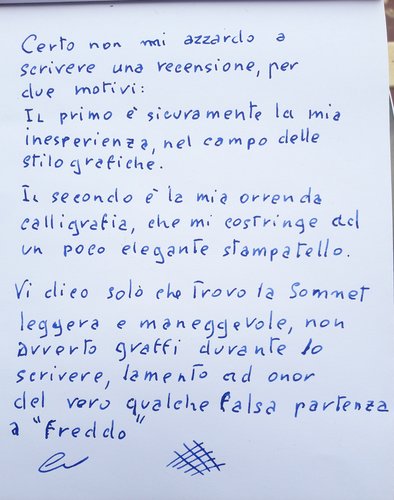 Certo non mi azzardo a
scrivere una recensione, per
due motivi:
Il primo è sicuramente la mia
inesperienza, nel campo delle
stilografiche.
Il secondo è la mia orrenda
calligrafia, che mi costringe ad
un poco elegante stampatello.
Vi dico solò che trovo la Sommet
leggera e maneggevole, non
avverto graffi durante lo
scrivere, lamento ad onor
del vero qualche falsa partenza
a "freddo"